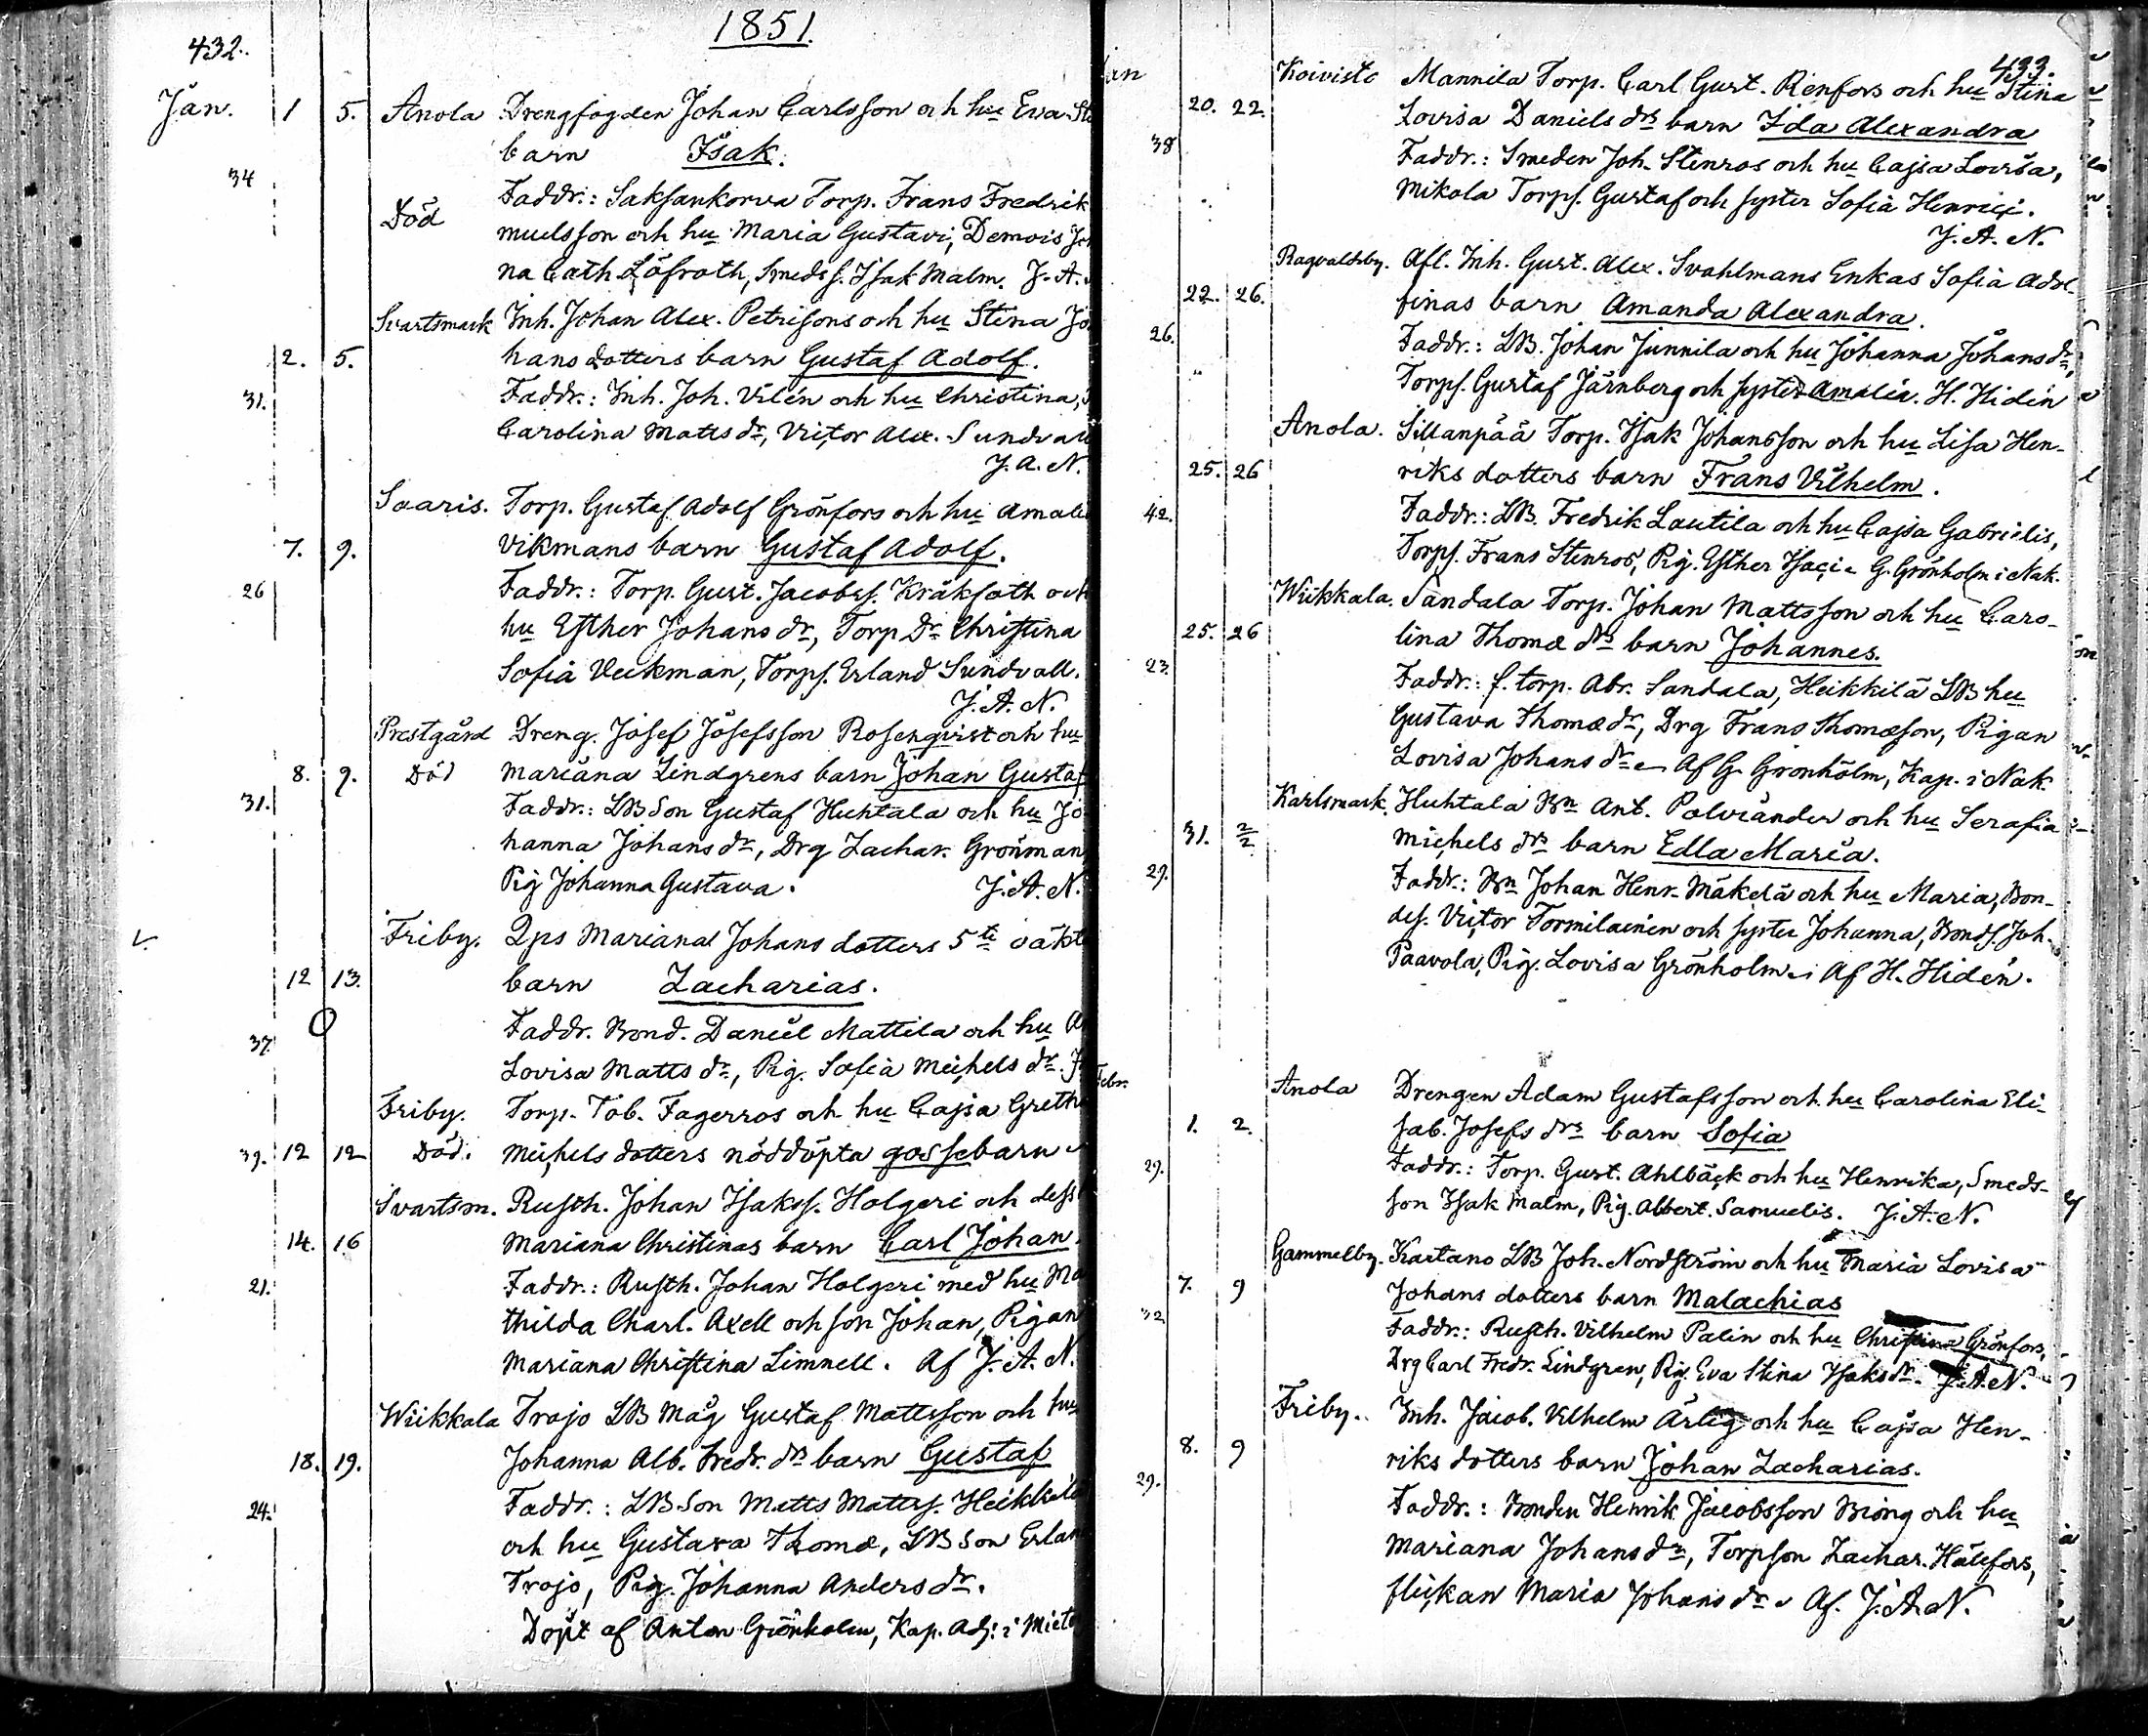 432.
1851.
Jan. 1 5. Anola Drengfogden Johan Carlsson och hu Eva
barn Isak.
34
Faddr.: Saksankorva Torp. Frans Fredrik
Död
muelsson och hu Maria Gustavi, Demois
na Cath Löfroth, Smeds s. Isak Malm. J. A.
Svartsmark Inh. Johan Alex. Petrisons och hu Stina Jo
2. 5. hans dotters barn Gustaf Adolf.
31. Faddr.: Inh. Joh. Vilén och hu Christina,
Carolina Matts dr, Victor Alex. Sundvall
J. A. N.
Saaris. Torp. Gustaf Adolf Grönfors och hu Amalia
7. 9. Vikmans barn Gustaf Adolf.
26 Faddr.: Torp. Gust. Jacobss. Kråkfoth och
hu Esther Johans dr, Torp Dr Christina
Sofia Veckman, Torps. Erland Sundvall.
J. A. N.
Prestgård Dreng. Josef Josefsson Rosenqvist och hu
8. 9. Död Mariana Lindgrens barn Johan Gustaf
31. Faddr.: LB Son Gustaf Huhtala och hu Jo
hanna Johans dr, Drg Zachar. Grönman
Pig Johanna Gustava. J. A. N.
Friby. Qps Mariana Johans dotters 5te oäkta
12 13. barn Zacharias.
Faddr. Bond. Daniel Mattila och hu
37. Lovisa Matts dr, Pig. Sofia Michels dr.
Friby. Torp. Tob. Fagerros och hu Cajsa Gretha
39. 12 12 Död. Michels dotters nöddöpta gossebarn
Svartsm. Rusth. Johan Isakss. Holgeri och dess
14. 16 Mariana Christinas barn Carl Johan
21. Faddr.: Rusth. Johan Holgeri med hu Ma
thilda Charl. Axell och son Johan, Pigan
Mariana Christina Limnell. Af J. A. N.
Wiikkala Trojo LB Måg Gustaf Mattsson och hu
18. 19. Johanna Alb. Fredr. drs barn Gustaf
24. Faddr.: LB Son Matts Mattss. Heikkilä
och hu Gustava Thomæ, LB Son Erlan
Trojo, Pig. Johanna Anders dr.
Döpt af Anton Grönholm, Kap. Adj. i Mieto
433.
Jan
Koivisto Mannila Torp. Carl Gust. Renfors och hu Stina
20. 22. Lovisa Daniels drs barn Ida Alexandra
38 Faddr.: Smeden Joh. Stenros och hu Cajsa Lovisa,
Mikola Torps. Gustaf och syster Sofia Henrici.
J. A. N.
Ragvaldsby. Afl. Inh. Gust. Alex. Svahlmans Enkas Sofia Adol-
22. 26. finas barn Amanda Alexandra.
26. Faddr.: LB. Johan Junnila och hu Johanna Johans dr,
Torps. Gustaf Järnberg och syster Amalia. H. Hidén
Anola. Sillanpää Torp. Isak Johansson och hu Lisa Hen-
25. 26 riks dotters barn Frans Vilhelm.
42. Faddr.: LB. Fredrik Lautila och hu Cajsa Gabrielis,
Torps. Frans Stenros, Pig. Esther Isaci. G. Grönholm i Nak.
Wiikkala. Sandala Torp. Johan Mattsson och hu Caro-
25. 26 lina Thomæ drs barn Johannes.
23. Faddr.: f. torp. Abr. Sandala, Heikkilä LB hu
Gustava Thomæ dr, Drg Frans Thomæson, Pigan
Lovisa Johans dr Af G. Grönholm, Kap. i Nak.
Karlsmark. Huhtala Bn Ant. Polviander och hu Serafia
31. 2/2 Michels drs barn Edla Maria.
29. Faddr.: Bn Johan Henr. Mäkelä och hu Maria, Bon-
des. Victor Tormilainen och syster Johanna, Bonds. Joh.
Paavola, Pig. Lovisa Grönholm Af H. Hidén.
Febr.
Anola Drengen Adam Gustafsson och hu Carolina Eli-
1. 2. sab. Josefs drs barn Sofia
29. Faddr.: Torp. Gust. Ahlbäck och hu Henrika, Smeds-
son Isak Malm, Pig. Albert. Samuelis. J. A. N.
Gammelby. Kartano LB Joh. Nordström och hu Maria Lovisa
7. 9 Johans dotters barn Malachias
32 Faddr.: Rusth. Vilhelm Palin och hu Christina Grönfors,
Drg Carl Fredr. Lindgren, Pig. Eva Stina Isaks dr. J. A. N.
Friby. Inh. Jacob. Vilhelm Ärlig och hu Cajsa Hen-
8. 9 riks dotters barn Johan Zacharias.
29. Faddr.: Bonden Henrik Jacobsson Biong och hu
Mariana Johans dr, Torpson Zachar. Hällfors,
flickan Maria Johans dr Af. J. A. N.